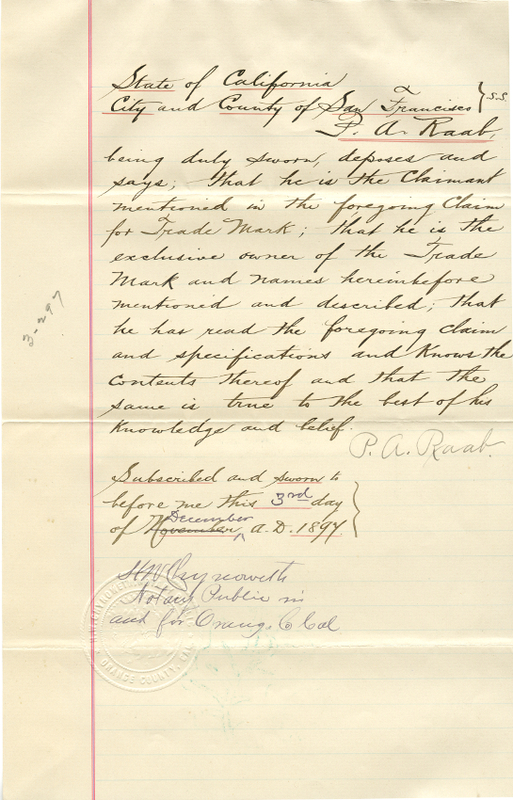 State of California
City and County of San Francisco } S.S.
P. A. Raab,
being duly sworn, deposes and
says; that he is the Claimant
mentioned in the foregoing Claim
for Trade Mark; that he is the
exclusive owner of the Trade
Mark and names hereinbefore
mentioned and described; that
he has read the foregoing claim
and specifications and Knows the
Contents thereof and that the
same is true to the best of his
Knowledge and belief.
P. A. Raab.
Subscribed and sworn to
before me this 3rd day
December
of November, A.D. 1897
Notary Public in
and for Orange Co Cal.
ORANGE COUNTY, CAL
3-297